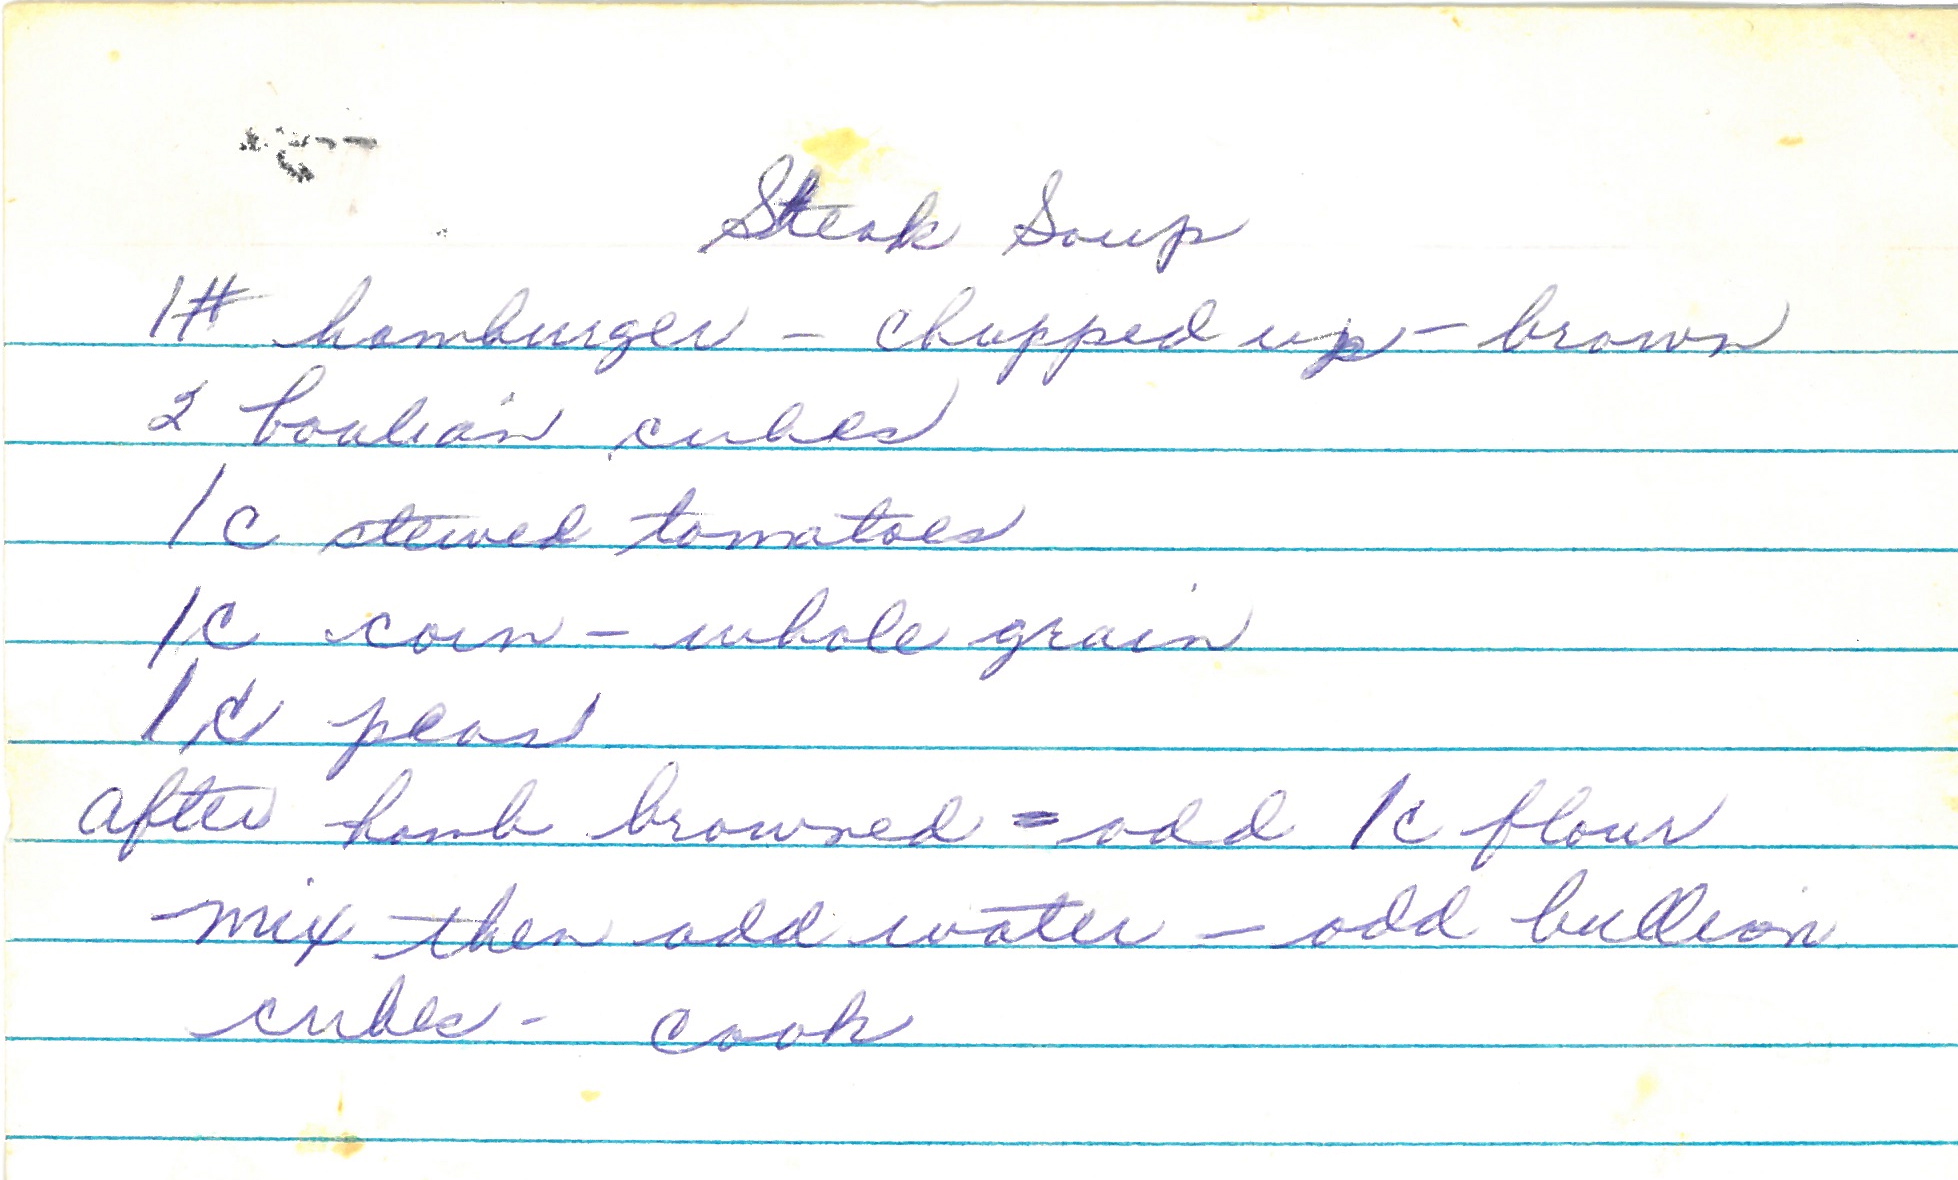 Steak Soup
1# hamburger - chopped up - brown
2 boulian cubes
1c stewed tomatoes
1c corn - whole grain
1c peas
after hamb browned = add 1c flour
mix then add water - add bullion
cubes - cook